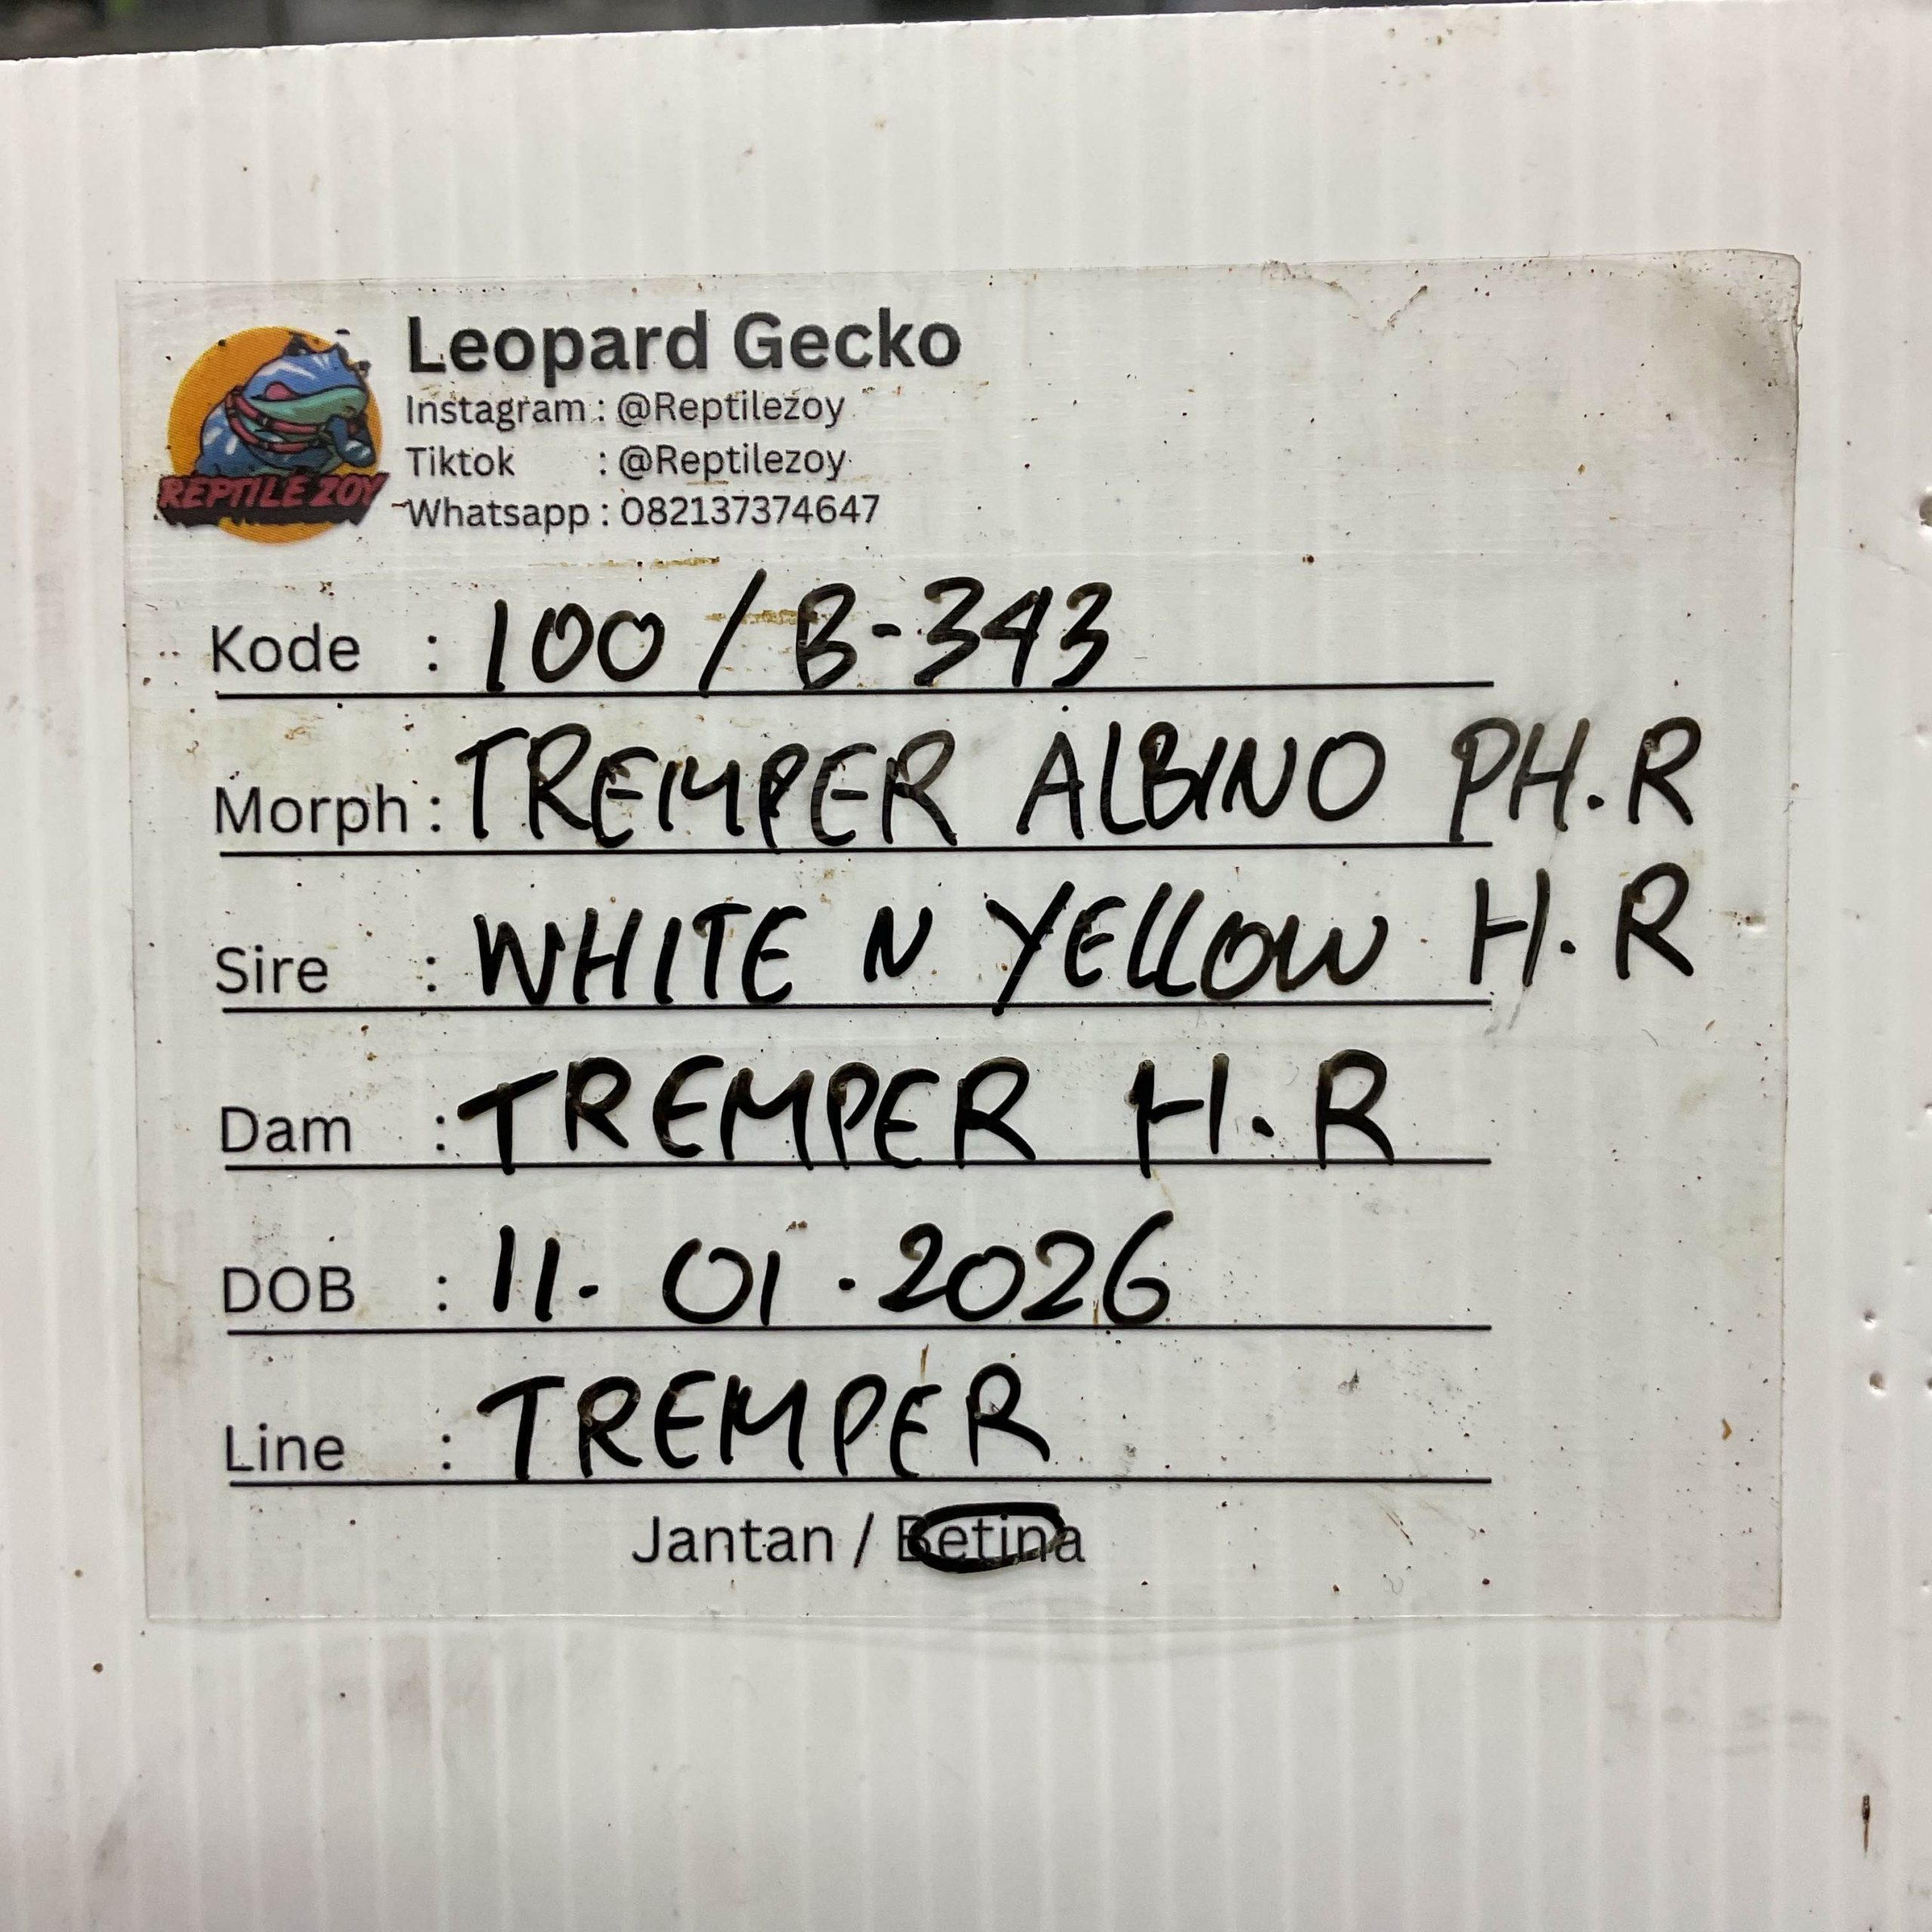 Leopard Gecko
Instagram : @Reptilezoy
Tiktok : @Reptilezoy
Whatsapp : 082137374647
REPTILE ZOY
Kode : 100 / B-343
Morph : TREMPER ALBINO PH.R
Sire : WHITE N YELLOW H.R
Dam : TREMPER H.R
DOB : 11.01.2026
Line : TREMPER
Jantan / Betina